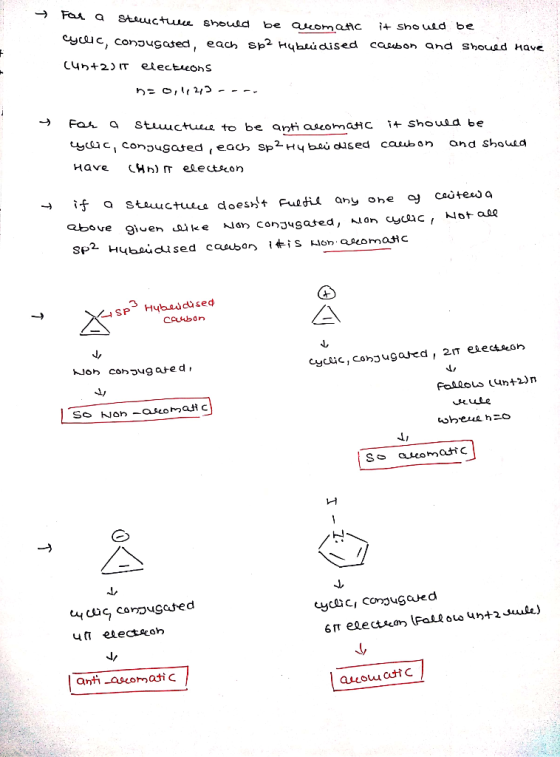 → For a structure should be aromatic it should be
cyclic, conjugated, each sp² Hybridised carbon and should Have
(4n+2)π electrons
n= 0,1,2,3 ----.
→ For a structure to be anti aromatic it should be
cyclic, conjugated, each sp² Hybridised carbon and should
Have (4n) π electron
→ if a structure doesn't fulfil any one of criteria
above given like Non conjugated, Non cyclic, Not all
SP² Hybridised carbon it is Non-aromatic
→ SP³ Hybridised
carbon
↓
Non conjugated,
↓
So Non-aromatic
⊕
↓
cyclic, conjugated, 2π electron
↓
Follow (4n+2)π
rule
where n=0
↓
So aromatic
→ ⊖
↓
cyclic, conjugated
4π electron
↓
anti-aromatic
H
N
↓
cyclic, conjugated
6π electron (Follow 4n+2 rule)
↓
aromatic